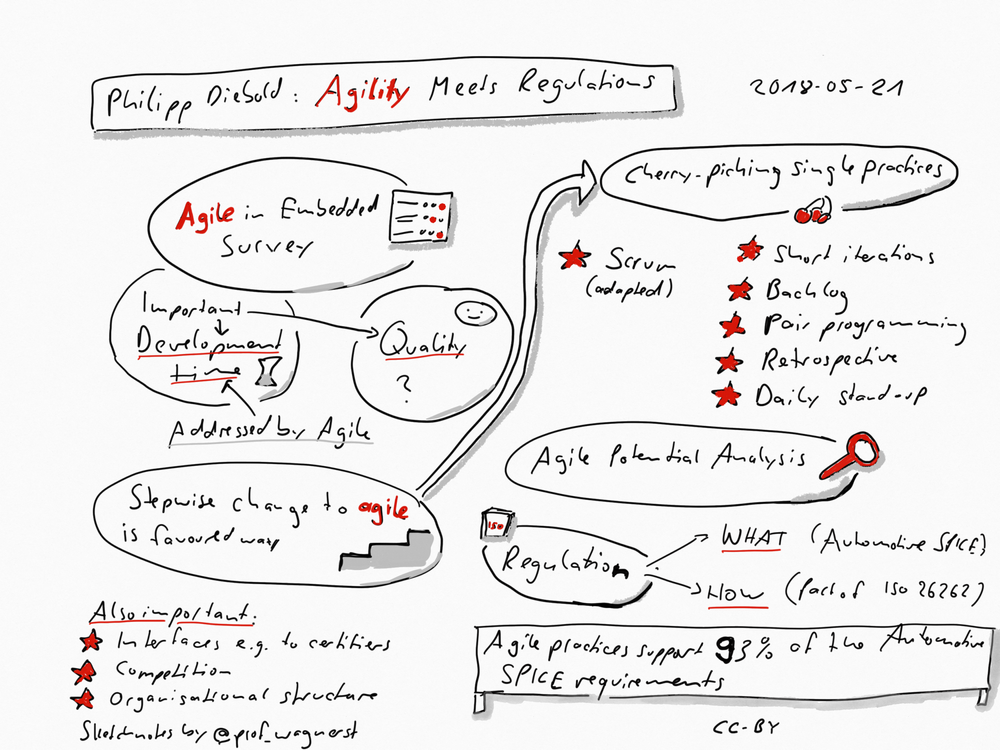 Philipp Diebold: Agility Meets Regulations
2018-05-21
Agile in Embedded
Survey
Important
Development
time
Quality
?
Addressed by Agile
Stepwise change to agile
is favoured way
Also important:
Interfaces e.g. to certifiers
Competition
Organisational structure
Sketchnotes by @prof_wagnerst
Cherry-picking single practices
Scrum
(adapted)
Short iterations
Backlog
Pair programming
Retrospective
Daily stand-up
Agile Potential Analysis
ISO
Regulation
WHAT (Automotive SPICE)
HOW (Part of ISO 26262)
Agile practices support 93% of the Automotive
SPICE requirements
CC-BY